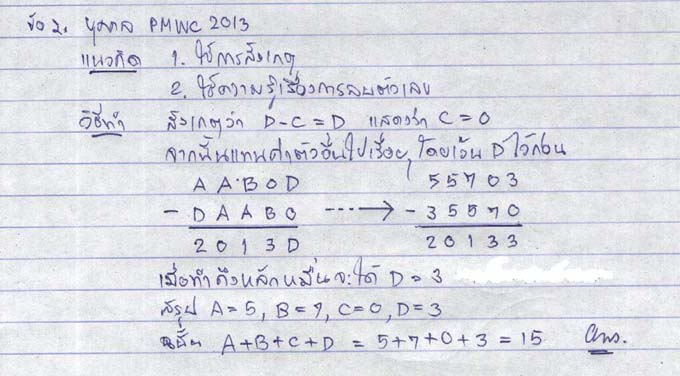 ข้อ 2. บุคคล PMWC 2013
แนวคิด 1. ใช้การสังเกต
2. ใช้ความรู้เรื่องการลบตัวเลข
วิธีทำ สังเกตว่า D-C=D แสดงว่า C=0
จากนั้นแทนค่าตัวอื่นไปเรื่อยๆ โดยเว้น D ไว้ก่อน
A A B 0 D 5 5 7 0 3
- D A A B 0 ----> - 3 5 5 7 0
2 0 1 3 D 2 0 1 3 3
เมื่อทำถึงหลักหมื่นจะได้ D = 3
สรุป A=5, B=7, C=0, D=3
ดังนั้น A+B+C+D = 5+7+0+3 = 15 Ans.